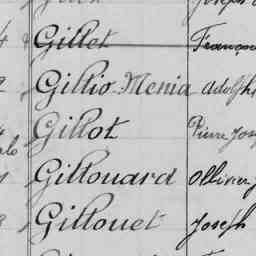 Gillet
Gillio Menia Adolph
Gillot Pierre Jos
Gillouard Ollivier
Gillouet Joseph